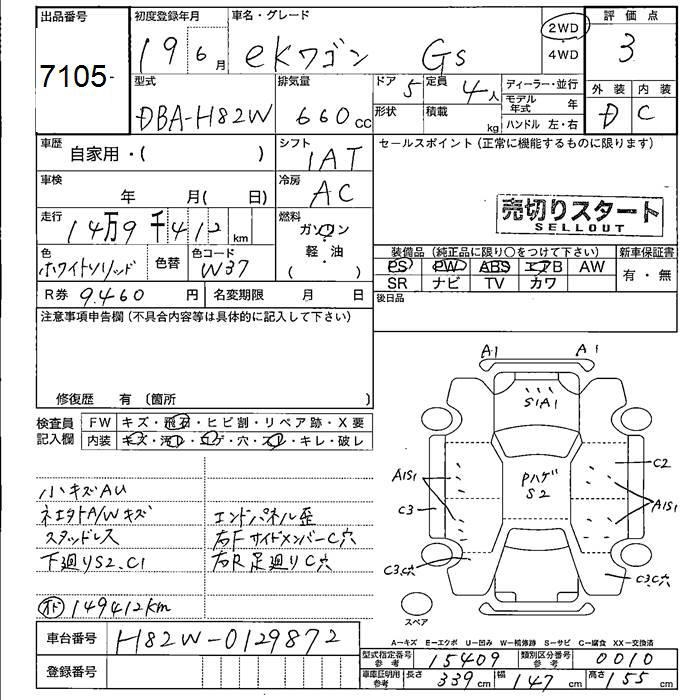 出品番号 初度登録年月 車名・グレード 評価点
7105- 19 6月 ekワゴン Gs 2WD ・ 4WD 3
型式 排気量 ドア 定員 ディーラー・並行 外装 内装
DBA-H82W 660cc 5 4人 モデル年式 年 D C
形状 積載 kg ハンドル 左・右
車歴 自家用・( ) シフト 1AT セールスポイント(正常に機能するものに限ります)
車検 年 月( 日) 冷房 AC
売切りスタート
SELLOUT
走行 14万9千412km 燃料 ガソリン
軽・油
( )
色 ホワイトソリッド 色替 色コード W37
装備品(純正品に限り○をつけて下さい) 新車保証書
PS PW ABS エアB AW 有・無
SR ナビ TV カワ
R券 9.460円 名変期限 月 日 後日品
注意事項申告欄(不具合内容等は具体的に記入して下さい)
修復歴 有 〔箇所 〕
検査員記入欄 FW キズ・飛石・ヒビ割・リペア跡・X要
内装 キズ・汚レ・コゲ・穴・スレ・キレ・破レ
小キズAU
A/Wキズ エンドパネル歪
スタッドレス 右FサイドメンバーC穴
下廻りS2.C1 右R足廻りC穴
149412km
A1 A1
S1A1
A1S1 Pハゲ S2 C2
C3 A1S1
C3.C穴 C3C穴
スペア
A−キズ E−エクボ U−凹み W−補修跡 S−サビ C−腐食 XX−交換済
車台番号 H82W-0129872
登録番号
型式指定番号 参考 15409 類別区分番号 参考 0010
車庫証明用 参考 長さ 339cm 幅 147cm 高さ 155cm